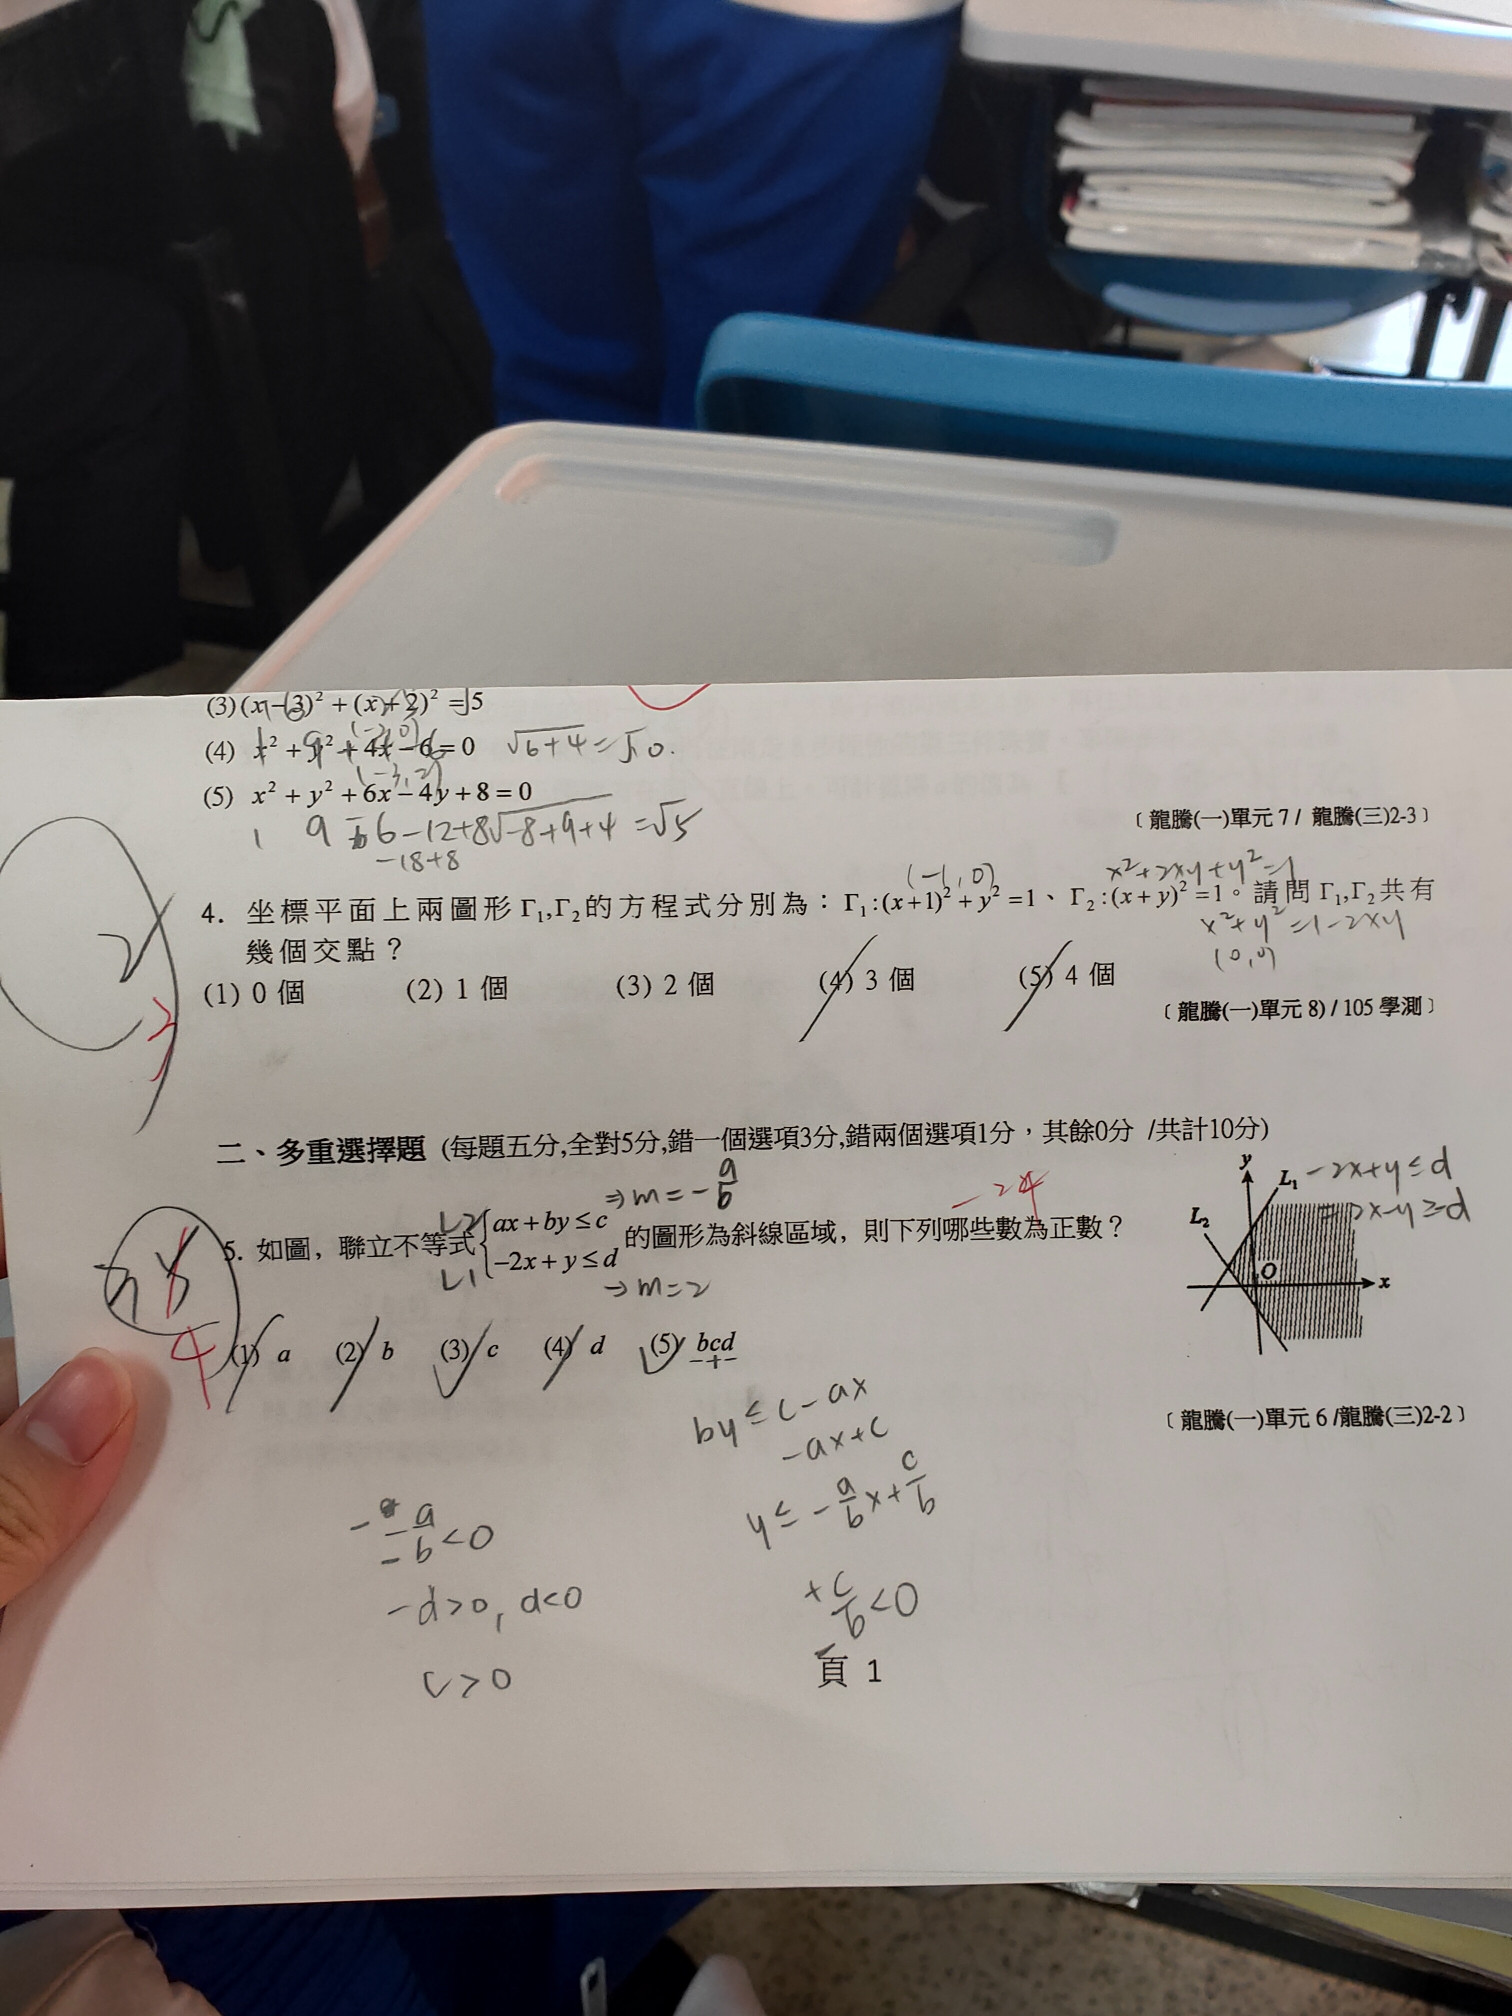 (3) (x-3)² + (x+2)² = 5
(4) x² + y² + 4x - 6 = 0 √6+4 = √10.
(-3,2)
(5) x² + y² + 6x - 4y + 8 = 0
√-8+9+4 = √5
-18+8
〔龍騰(一)單元 7 / 龍騰(三)2-3〕
(-1,0) x²+2xy+y²=1
4. 坐標平面上兩圖形 Γ₁,Γ₂的方程式分別為：Γ₁:(x+1)² + y² =1、Γ₂:(x+y)² =1。請問 Γ₁,Γ₂共有
x²+y²=1-2xy
幾個交點？
(0,0)
(1) 0 個 (2) 1 個 (3) 2 個 (4) 3 個 (5) 4 個
〔龍騰(一)單元 8) / 105 學測〕
2
二、多重選擇題 (每題五分,全對5分,錯一個選項3分,錯兩個選項1分，其餘0分 /共計10分)
⇒m=-a/b
y
L₁ -2x+y≤d
2x-y≥-d
L₂
5. 如圖，聯立不等式 L2 { ax+by≤c
L1 -2x+y≤d 的圖形為斜線區域，則下列哪些數為正數？
⇒m=2
O x
4
(1) a (2) b (3) c (4) d (5) bcd
-+-
by≤c-ax
-ax+c
〔龍騰(一)單元 6 /龍騰(三)2-2〕
y≤-a/b x+c/b
-a/-b<0
-d>0, d<0
+c/b<0
c>0
頁 1